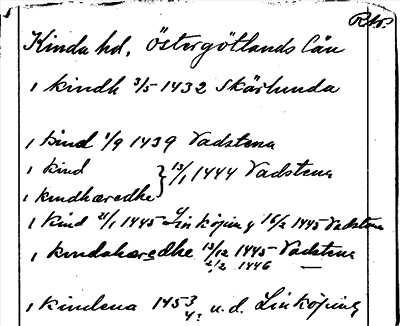 RAp.
Kinda hd, Östergötlands län
, kindh 3/5 1432 Skärlunda
, kind 1/9 1439 Vadstena
, kind } 13/1 1444 Vadstena
, kindhæredhe
, kind 21/1 1445 Linköping 16/2 1445 Vadstena
, kindahæredhe 13/12 1445 Vadstena
2/2 1446 —
, kindena 1453 u.d. Linköping